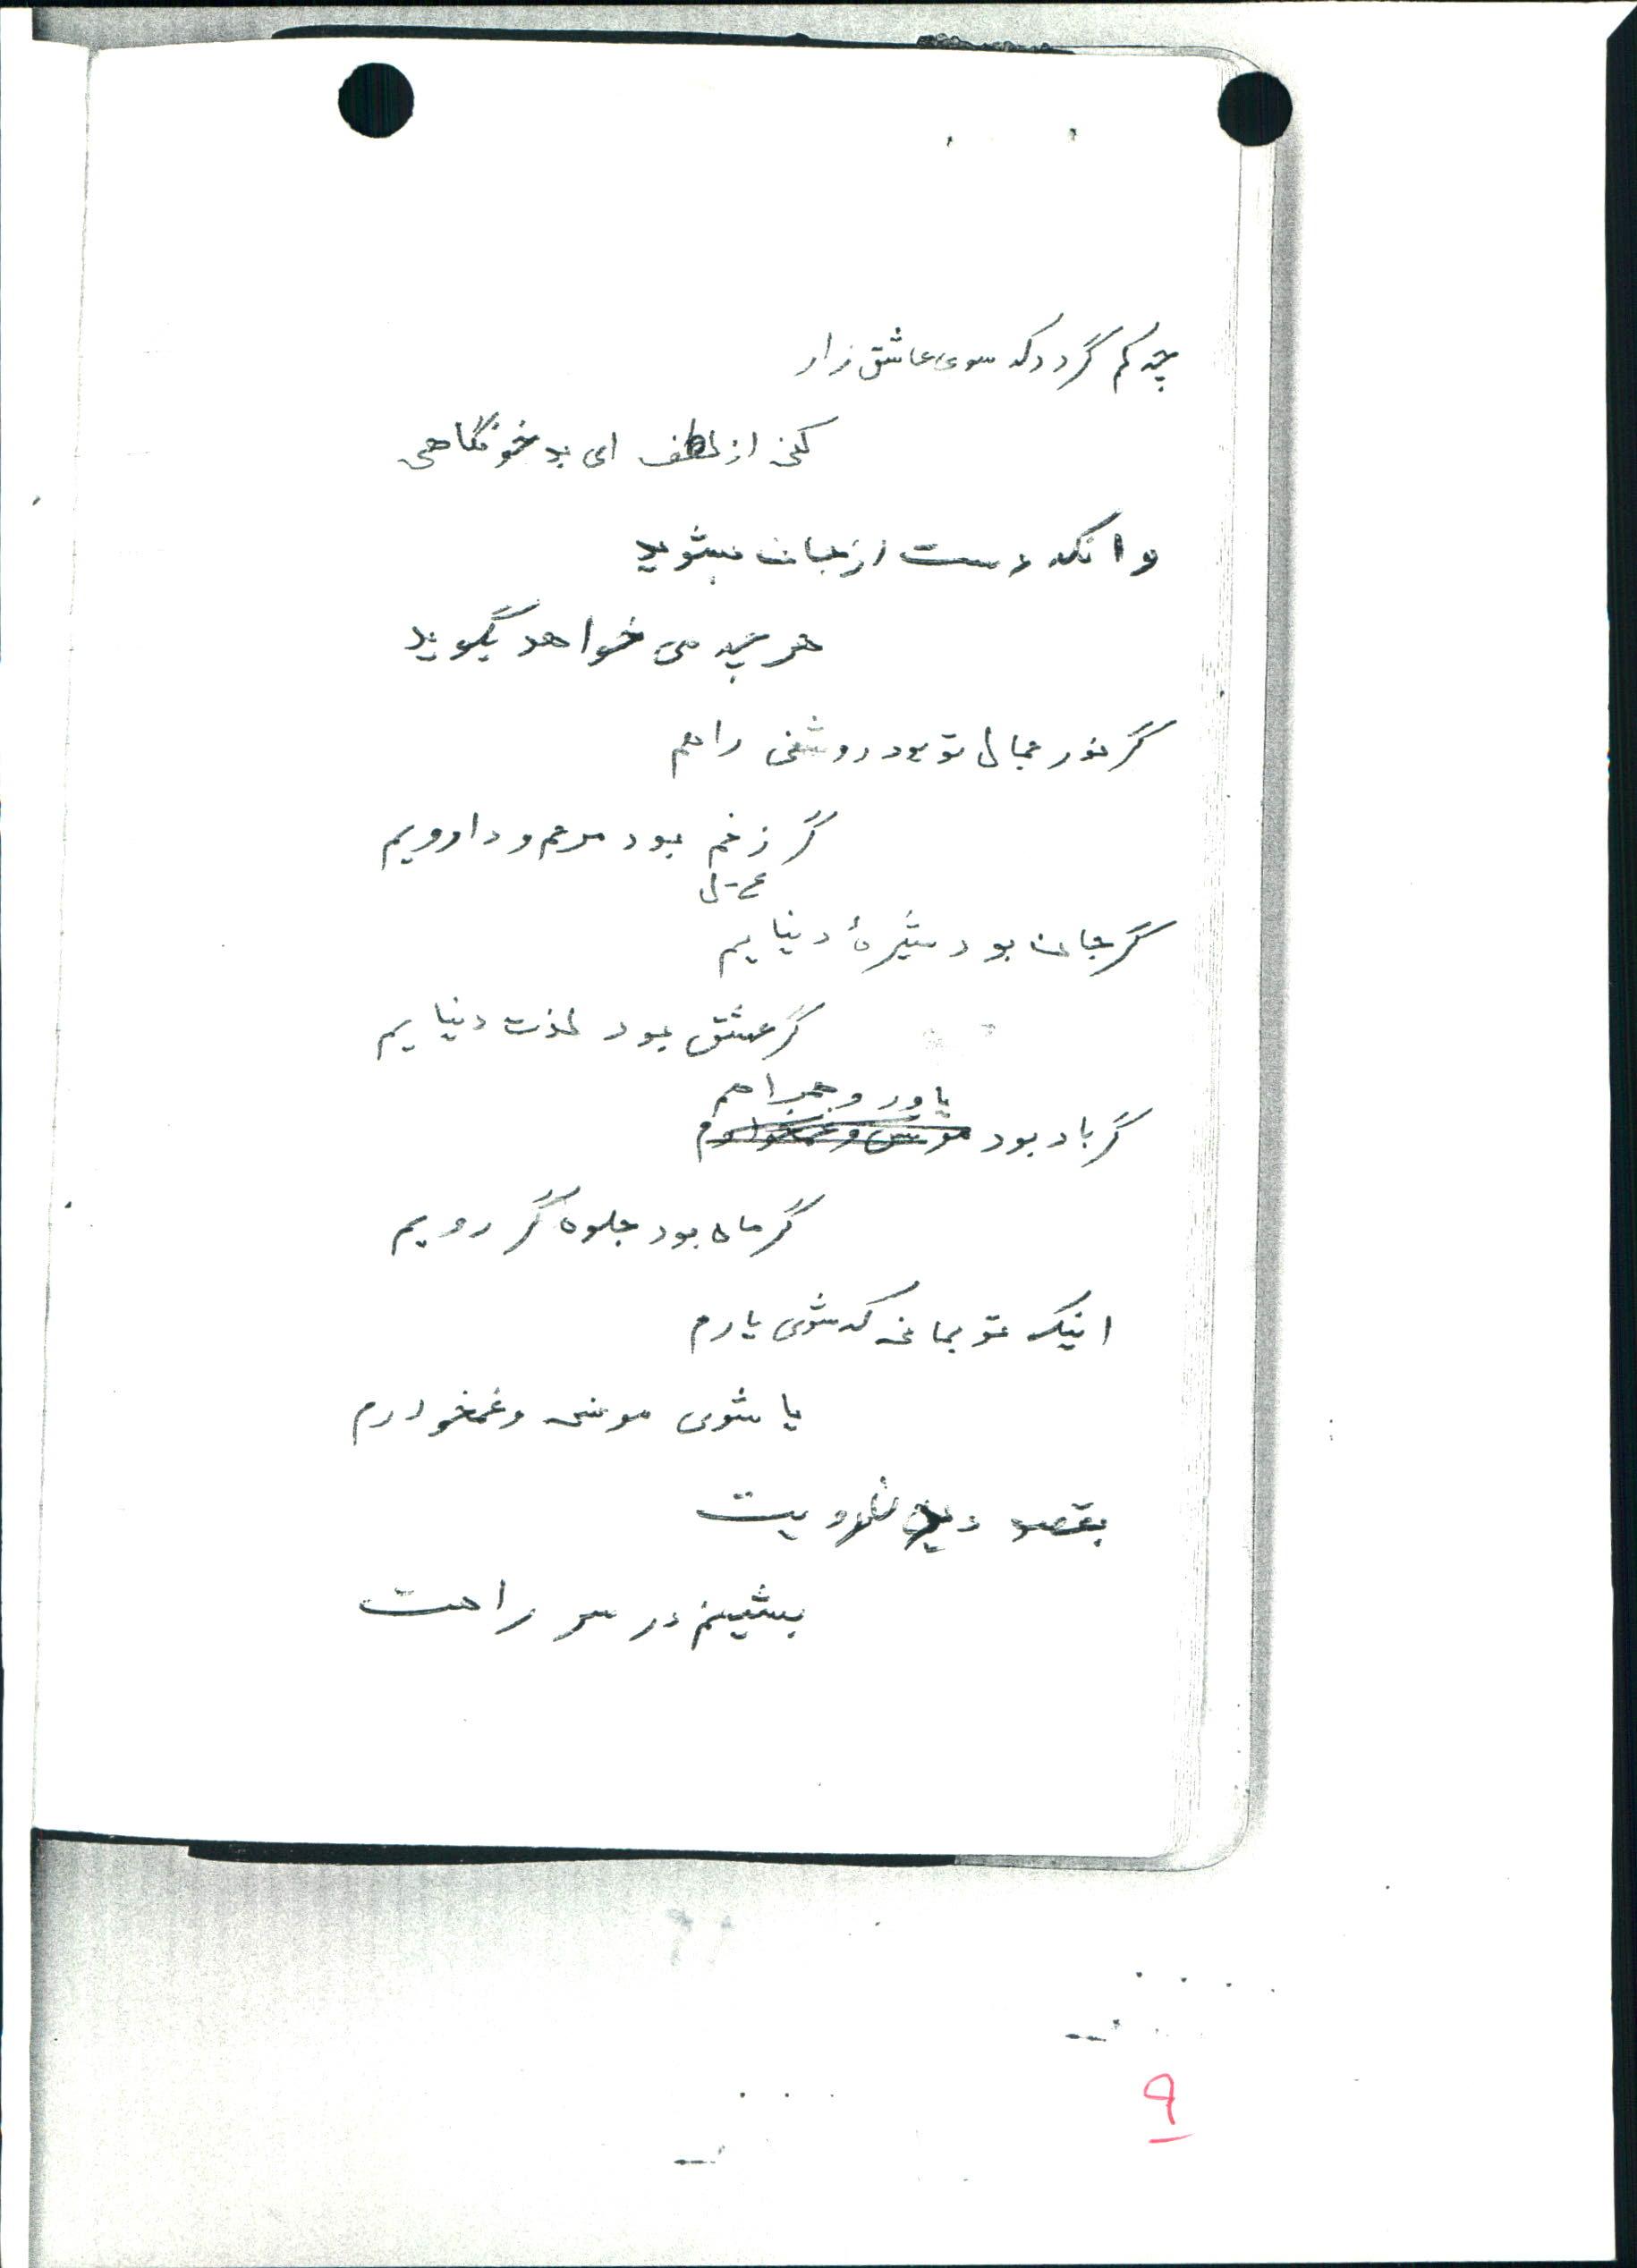 چه کم گردد که سوی عاشق زار
کنی از لطف ای بدخو نگاهی
وانکه دست از جان بشوید
هر چه می خواهد بگوید
گر نور جمال تو بود روشنی راهم
گر زخم بود مرهم و دارویم
گر جان بود شیرهٔ دنیایم
گر عشق بود لذت دنیایم
یاور و همراهم
گر باد بود مونس و غمخوارم
گر ماه بود جلوه گر رویم
اینک تو بمانی که شوی یارم
یا شوی مونس و غمخوارم
بقصد رویت
بنشینم در سر راهت
۹